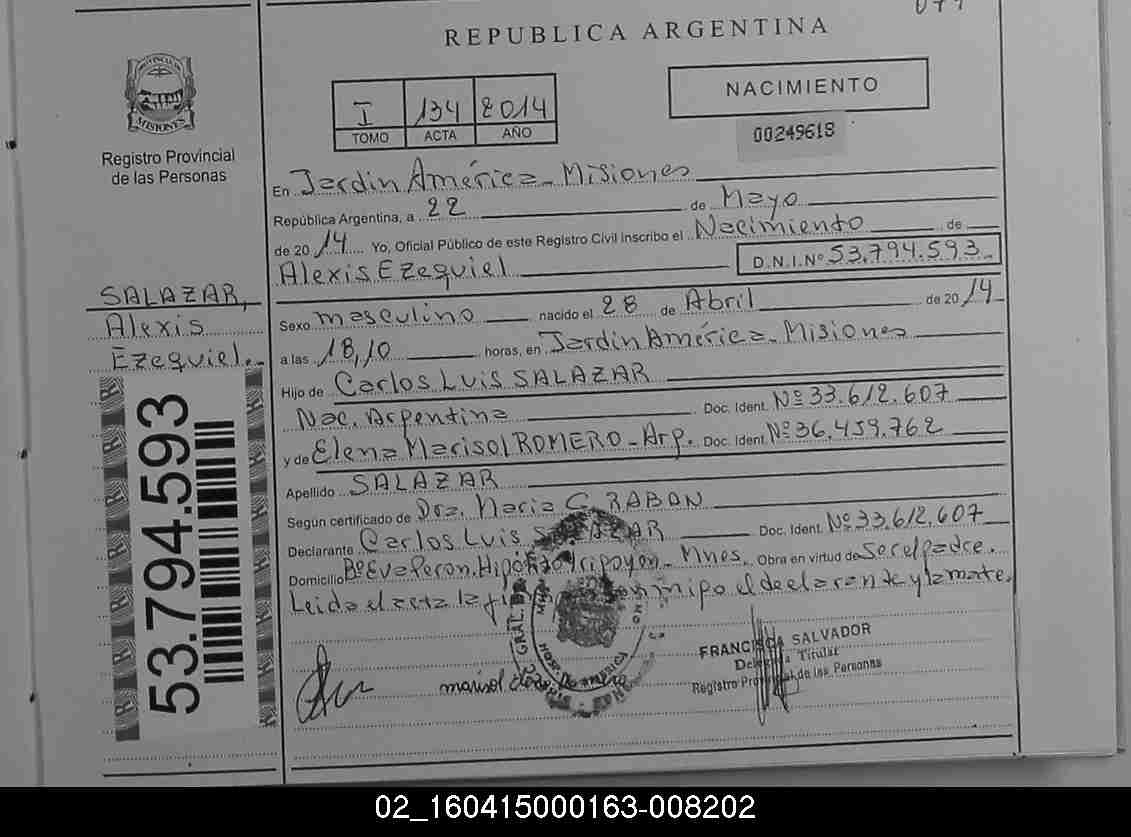 REPUBLICA ARGENTINA
PROVINCIA DE MISIONES
Registro Provincial
de las Personas
I 134 2014
TOMO ACTA AÑO
NACIMIENTO
00249618
En Jardín América - Misiones
República Argentina, a 22 de Mayo
de 2014 Yo, Oficial Público de este Registro Civil inscribo el Nacimiento de
Alexis Ezequiel D.N.I.Nº 53.794.593
SALAZAR,
Alexis
Ezequiel.-
Sexo masculino nacido el 28 de Abril de 2014
a las 18,10 horas, en Jardín América - Misiones
Hijo de Carlos Luis SALAZAR
Nac. Argentina Doc. Ident. Nº 33.612.607
y de Elena Marisol ROMERO - Arg. Doc. Ident. Nº 36.459.762
Apellido SALAZAR
Según certificado de Dra. Maria C. RABAN
Declarante Carlos Luis SALAZAR Doc. Ident. Nº 33.612.607
Domicilio Bº Eva Peron, Hipólito Yrigoyen - Mnes. Obra en virtud de Ser el padre.
Leida el acta la conmigo el declarante y la madre.
53.794.593
FRANCISCA SALVADOR
Delegada Titular
Registro Provincial de las Personas
marisol
02_160415000163-008202